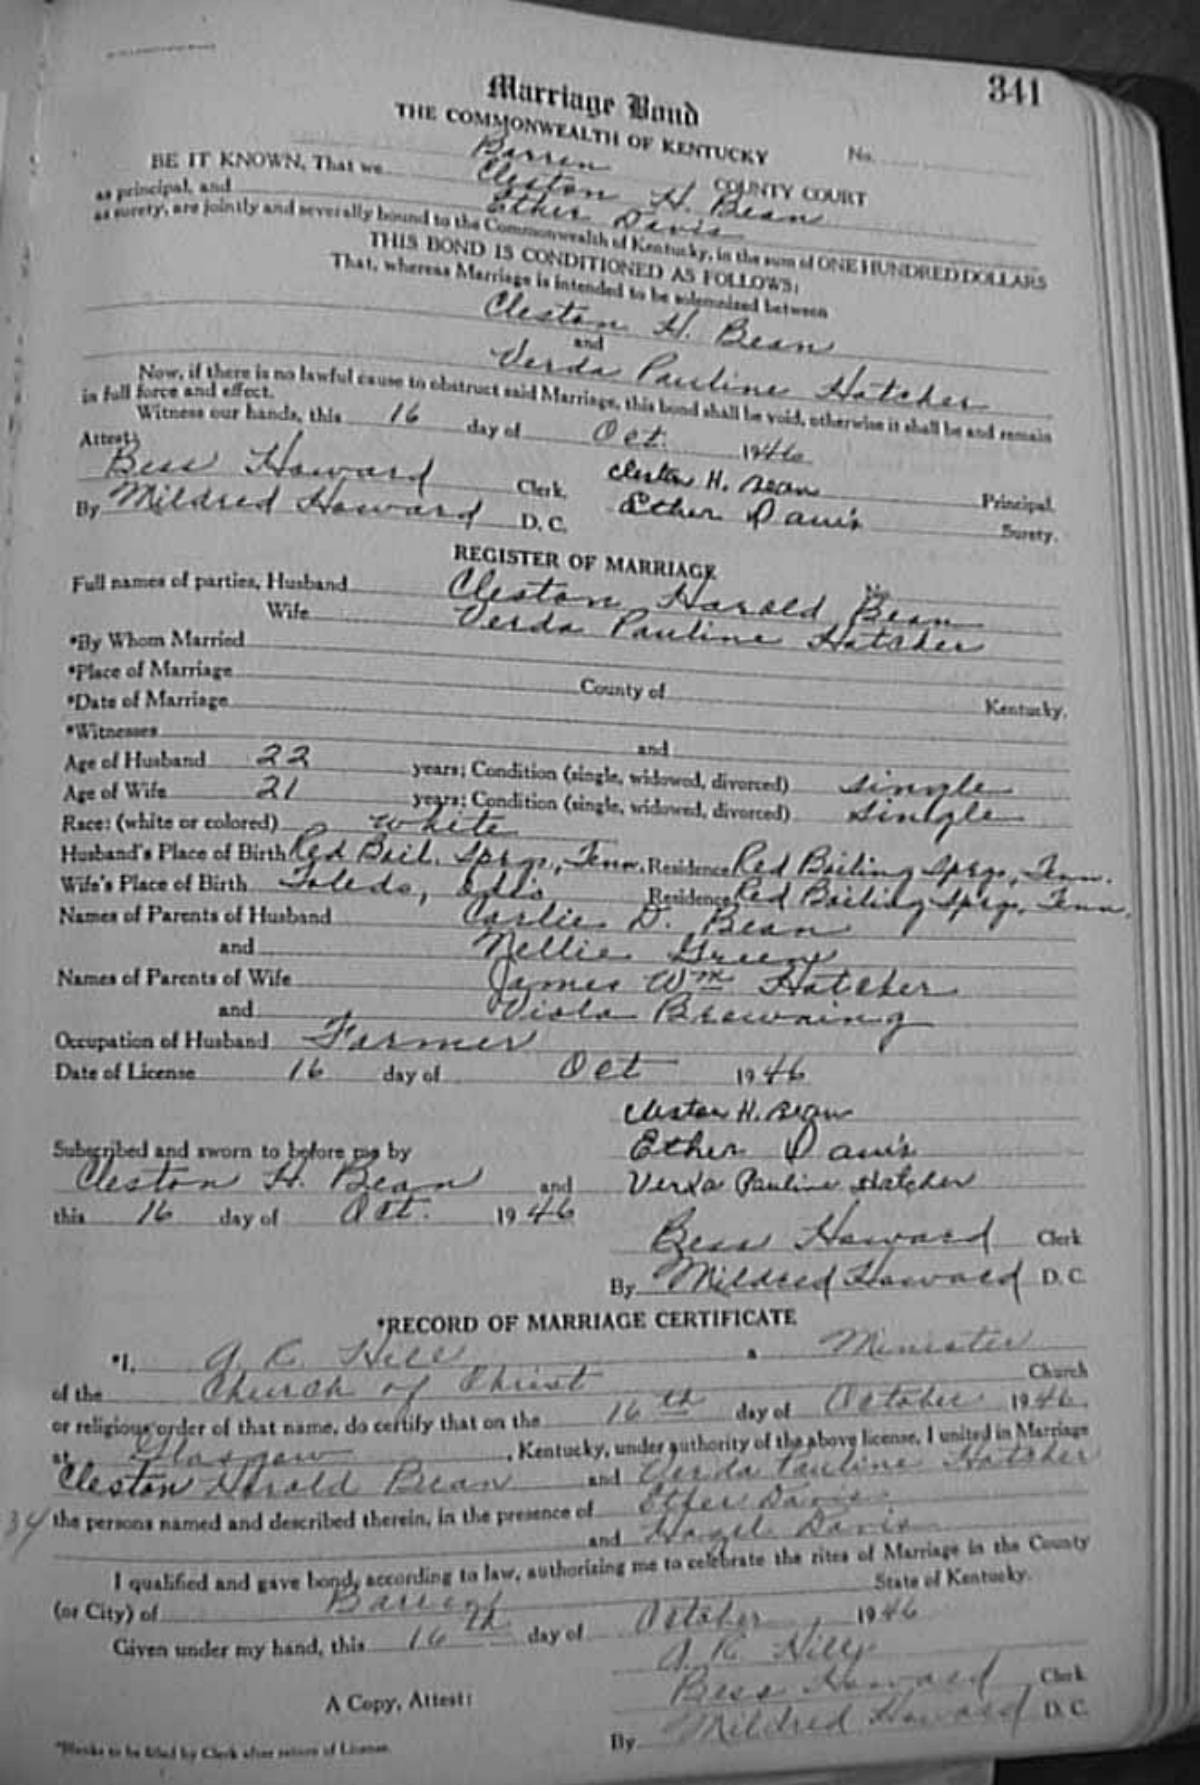 341
Marriage Bond
THE COMMONWEALTH OF KENTUCKY
No.
Barren COUNTY COURT
BE IT KNOWN, That we Cleston H. Bean
as principal, and Ether Davis
as surety, are jointly and severally bound to the Commonwealth of Kentucky, in the sum of ONE HUNDRED DOLLARS
THIS BOND IS CONDITIONED AS FOLLOWS:
That, whereas Marriage is intended to be solemnized between
Cleston H. Bean
and
Verda Pauline Hatcher
Now, if there is no lawful cause to obstruct said Marriage, this bond shall be void, otherwise it shall be and remain
in full force and effect.
Witness our hands, this 16 day of Oct. 1946
Attest:
Bess Howard Clerk. Cleston H. Bean Principal.
By Mildred Howard D. C. Ether Davis Surety.
REGISTER OF MARRIAGE
No.
Full names of parties, Husband Cleston Harold Bean
Wife Verda Pauline Hatcher
*By Whom Married
*Place of Marriage County of Kentucky.
*Date of Marriage
*Witnesses and
Age of Husband 22 years; Condition (single, widowed, divorced) single
Age of Wife 21 years; Condition (single, widowed, divorced) single
Race: (white or colored) white
Husband's Place of Birth Red Boil. Sprgs., Tenn. Residence Red Boiling Sprgs., Tenn.
Wife's Place of Birth Toledo, Ohio Residence Red Boiling Sprgs, Tenn.
Names of Parents of Husband Carlie D. Bean
and Nellie Green
Names of Parents of Wife James Wm Hatcher
and Viola Browning
Occupation of Husband Farmer
Date of License 16 day of Oct 1946
Cleston H. Bean
Ether Davis
Subscribed and sworn to before me by
Cleston H. Bean and Verda Pauline Hatcher
this 16 day of Oct. 1946
Bess Howard Clerk
By Mildred Howard D. C.
*RECORD OF MARRIAGE CERTIFICATE
*I, A. K. Hill a Minister
of the Church of Christ Church
or religious order of that name, do certify that on the 16th day of October 1946
at Glasgow, Kentucky, under authority of the above license, I united in Marriage
Cleston Harold Bean and Verda Pauline Hatcher
34 the persons named and described therein, in the presence of Ether Davis
and Hazel Davis
I qualified and gave bond, according to law, authorizing me to celebrate the rites of Marriage in the County
(or City) of Barren State of Kentucky.
Given under my hand, this 16th day of October 1946
A. K. Hill
A Copy, Attest: Bess Howard Clerk
By Mildred Howard D. C.
*Blanks to be filled by Clerk after return of License.